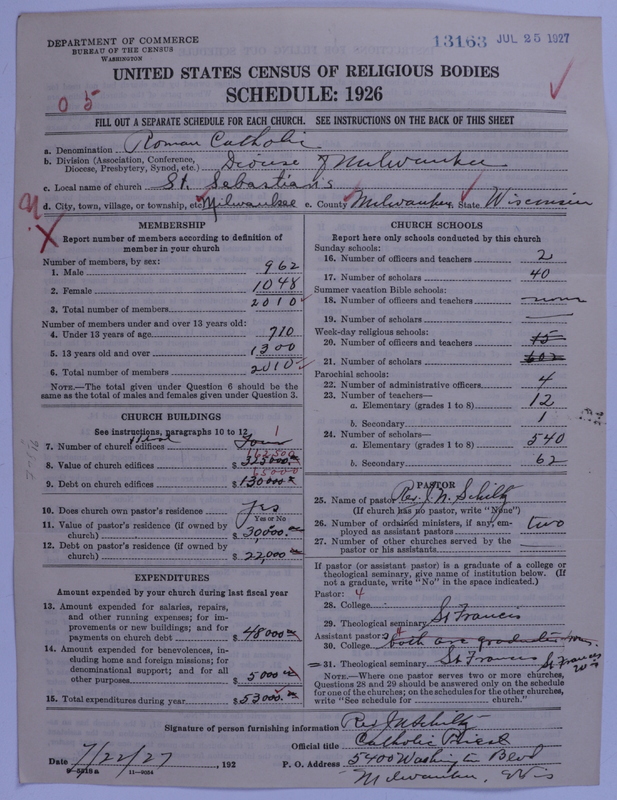 DEPARTMENT OF COMMERCE
BUREAU OF THE CENSUS
WASHINGTON
13163 JUL 25 1927
UNITED STATES CENSUS OF RELIGIOUS BODIES
SCHEDULE: 1926
0 5
FILL OUT A SEPARATE SCHEDULE FOR EACH CHURCH. SEE INSTRUCTIONS ON THE BACK OF THIS SHEET
a. Denomination Roman Catholic
b. Division (Association, Conference, Diocese, Presbytery, Synod, etc.) Diocese of Milwaukee
c. Local name of church St. Sebastian's
d. City, town, village, or township, etc. Milwaukee e. County Milwaukee f. State Wisconsin
MEMBERSHIP
Report number of members according to definition of
member in your church
Number of members, by sex:
1. Male 962
2. Female 1048
3. Total number of members 2010
Number of members under and over 13 years old:
4. Under 13 years of age 710
5. 13 years old and over 1300
6. Total number of members 2010
NOTE.—The total given under Question 6 should be the
same as the total of males and females given under Question 3.
CHURCH BUILDINGS
See instructions, paragraphs 10 to 12
7. Number of church edifices Four 1
8. Value of church edifices $ 325000.
9. Debt on church edifices 65000 $ 130000
10. Does church own pastor's residence yes
Yes or No
11. Value of pastor's residence (if owned by
church) $ 30000.
12. Debt on pastor's residence (if owned by
church) $ 22,000
EXPENDITURES
Amount expended by your church during last fiscal year
13. Amount expended for salaries, repairs,
and other running expenses; for im-
provements or new buildings; and for
payments on church debt $ 48000
14. Amount expended for benevolences, in-
cluding home and foreign missions; for
denominational support; and for all
other purposes $ 5000
15. Total expenditures during year $ 53000.
CHURCH SCHOOLS
Report here only schools conducted by this church
Sunday schools:
16. Number of officers and teachers 2
17. Number of scholars 40
Summer vacation Bible schools:
18. Number of officers and teachers none
19. Number of scholars —
Week-day religious schools:
20. Number of officers and teachers 15
21. Number of scholars 602
Parochial schools:
22. Number of administrative officers 4
23. Number of teachers—
a. Elementary (grades 1 to 8) 12
b. Secondary 1
24. Number of scholars—
a. Elementary (grades 1 to 8) 540
b. Secondary 62
PASTOR
25. Name of pastor Rev. J. N. Schiltz
(If church has no pastor, write "None")
26. Number of ordained ministers, if any, em-
ployed as assistant pastors two
27. Number of other churches served by the
pastor or his assistants —
If pastor (or assistant pastor) is a graduate of a college or
theological seminary, give name of institution below. (If
not a graduate, write "No" in the space indicated.)
Pastor: 4
28. College
29. Theological seminary St Francis
Assistant pastor: 4
30. College both are graduates
31. Theological seminary St Francis St Francis Wis
NOTE.—Where one pastor serves two or more churches,
Questions 28 and 29 should be answered only on the schedule
for one of the churches; on the schedules for the other churches,
write "See schedule for church."
Signature of person furnishing information Rev J N Schiltz
Official title Catholic Priest
Date 7/22/27, 192 P. O. Address 5400 Washington Blvd
8-5019a 11-9034 Milwaukee, Wis